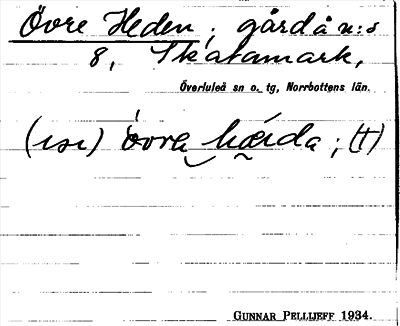 Övre Heden; gård å n:s
8, Skatamark,
Överluleå sn o. tg, Norrbottens län.
(ɪsɪ) òvrα hæ̀ida; (†)
GUNNAR PELLIJEFF 1934.